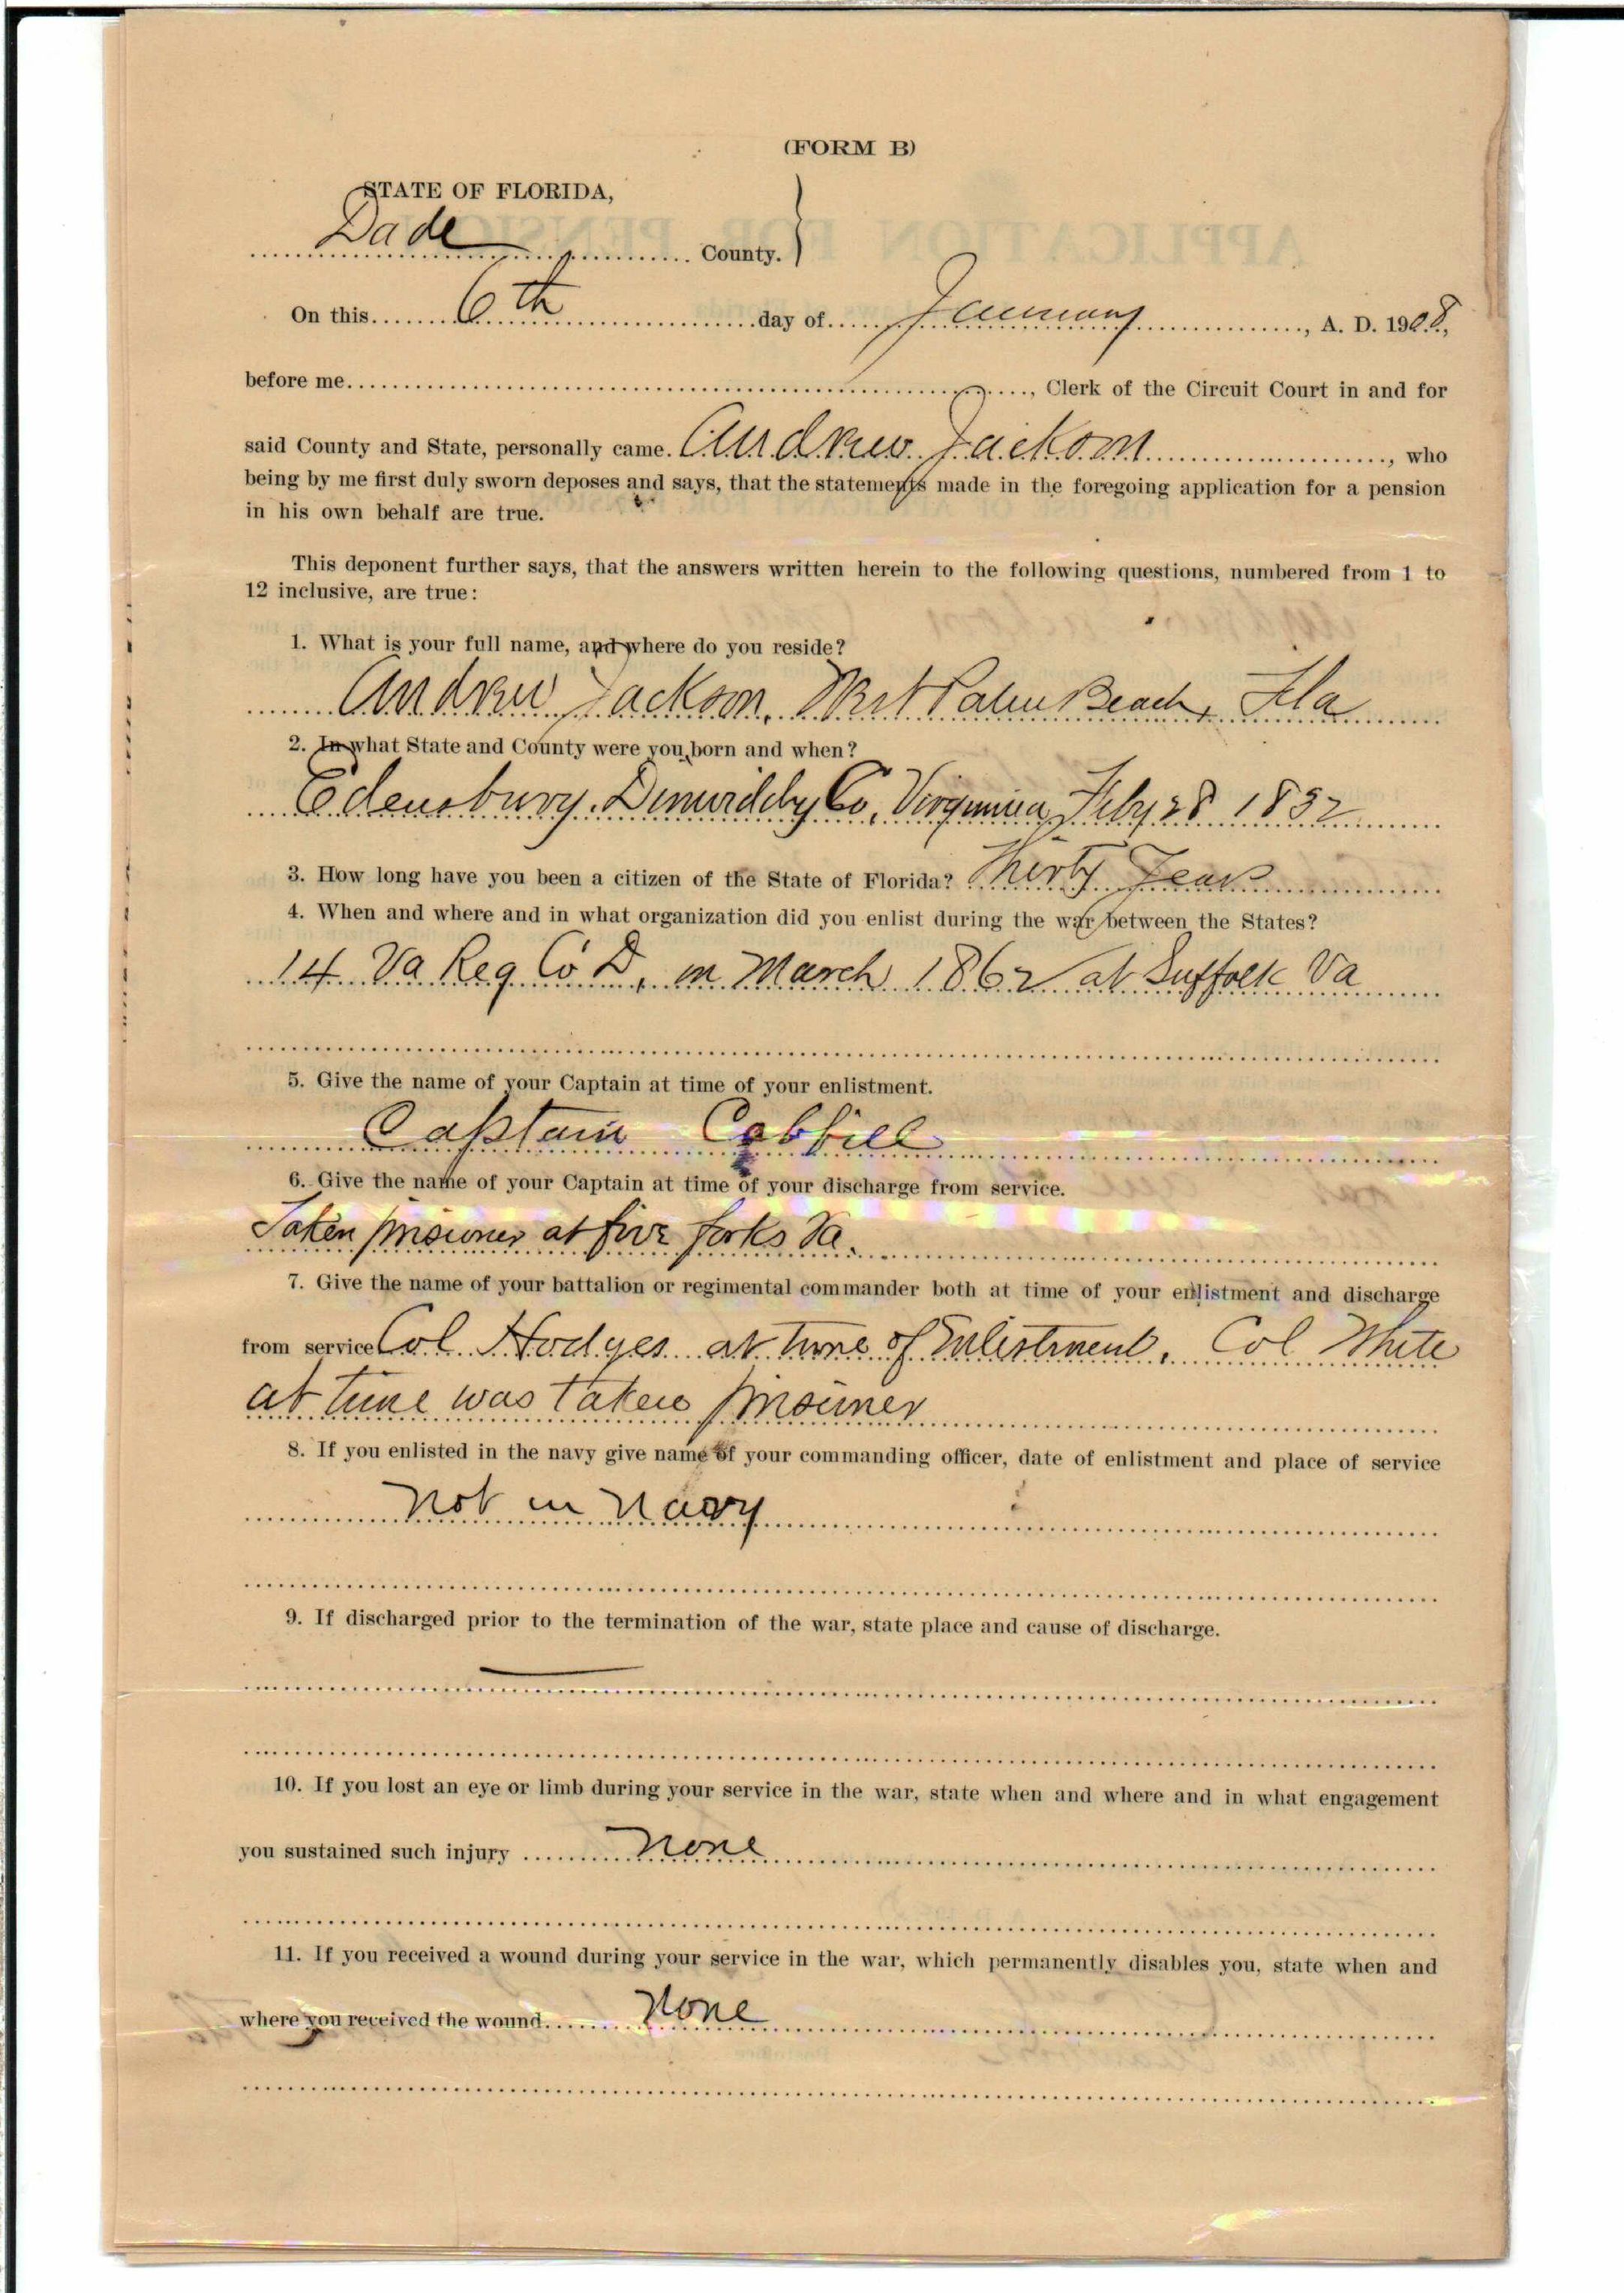 (FORM B)
STATE OF FLORIDA,
Dade County.
On this 6th day of January, A. D. 1908,
before me, Clerk of the Circuit Court in and for
said County and State, personally came Andrew Jackson, who
being by me first duly sworn deposes and says, that the statements made in the foregoing application for a pension
in his own behalf are true.
This deponent further says, that the answers written herein to the following questions, numbered from 1 to
12 inclusive, are true:
1. What is your full name, and where do you reside?
Andrew Jackson, West Palm Beach, Fla
2. In what State and County were you born and when?
Edensbury. Dinwiddy Co, Virginia, Feby 28 1832
3. How long have you been a citizen of the State of Florida? Thirty Years
4. When and where and in what organization did you enlist during the war between the States?
14 Va Reg Co D, in March 1862 at Suffolk Va
5. Give the name of your Captain at time of your enlistment.
Captain
6. Give the name of your Captain at time of your discharge from service.
Taken prisoner at five forks Va.
7. Give the name of your battalion or regimental commander both at time of your enlistment and discharge
from service Col Hodges at time of Enlistment, Col White
at time was taken prisoner
8. If you enlisted in the navy give name of your commanding officer, date of enlistment and place of service
Not in Navy
9. If discharged prior to the termination of the war, state place and cause of discharge.
10. If you lost an eye or limb during your service in the war, state when and where and in what engagement
you sustained such injury None
11. If you received a wound during your service in the war, which permanently disables you, state when and
where you received the wound None